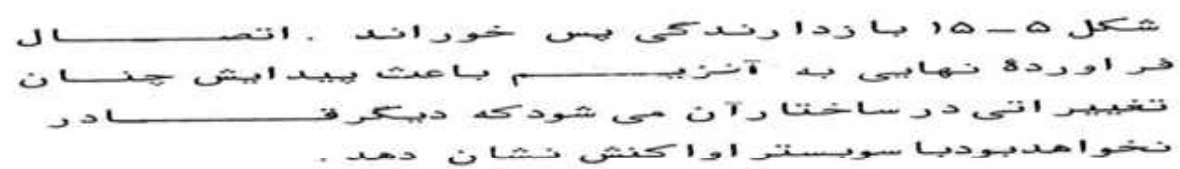 شکل ۵ – ۱۵ بازدارندگی پس خوراند . اتصـــــــال
فراوردهٔ نهایی به آنزیـــــــم باعث پیدایش چنـــان
تغییراتی در ساختارآن می شودکه دیگرقـــــــادر
نخواهدبودبا سوبستراواکنش نشان دهد .